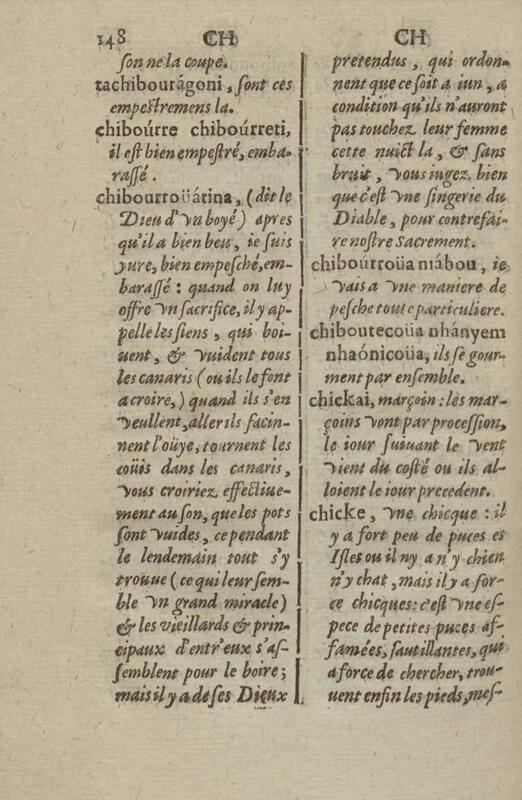 148 CH CH
son ne la coupe.
tachibouragoni, sont ces
empestremens la.
chiboúrre chiboúrreti,
il est bien empestré, emba-
rassé.
chibourroüátina, (dit le
Dieu d'vn boyé) apres
qu'il a bien beu, ie suis
yure, bien empesché, em-
barassé : quand on luy
offre vn sacrifice, il y ap-
pelle les siens, qui boi-
uent, & vuident tous
les canaris (ou ils le font
a croire,) quand ils s'en
veullent, aller ils facin-
nent l'oüye, tournent les
coüis dans les canaris,
vous croiriez effectiue-
ment au son, que les pots
sont vuides, cependant
le lendemain tout s'y
trouue (ce qui leur sem-
ble vn grand miracle)
& les vieillards & prin-
cipaux d'entr'eux s'as-
semblent pour le boire;
mais il y a de ses Dieux
pretendus, qui ordon-
nent que ce soit a iun, a
condition qu'ils n'auront
pas touchez leur femme
cette nuict la, & sans
bruit, vous iugez bien
que c'est vne singerie du
Diable, pour contrefai-
re nostre Sacrement.
chibourroüa niábou, ie
vais a vne maniere de
pesche toute particuliere.
chiboutecoüa nhányem
nhaónicoüa, ils se gour-
ment par ensemble.
chickai, marçoin : les mar-
çoins vont par procession,
le iour suiuant le vent
vient du costé ou ils al-
loient le iour precedent.
chicke, vne chicque : il
y a fort peu de puces es
Isles ou il ny a n'y chien
n'y chat, mais il y a for-
ce chicques: c'est vne es-
pece de petites puces af-
famées, sautillantes, qui
a force de chercher, trou-
uent enfin les pieds, mes-